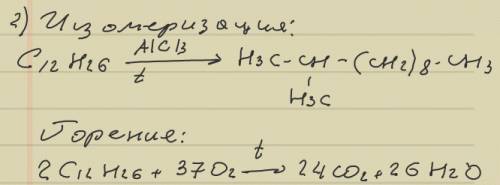 2) Изомеризация:
C12H26 AlCl3 t → H3C-CH-(CH2)8-CH3
H3C
Горение:
2C12H26 + 37O2 t → 24CO2 + 26H2O